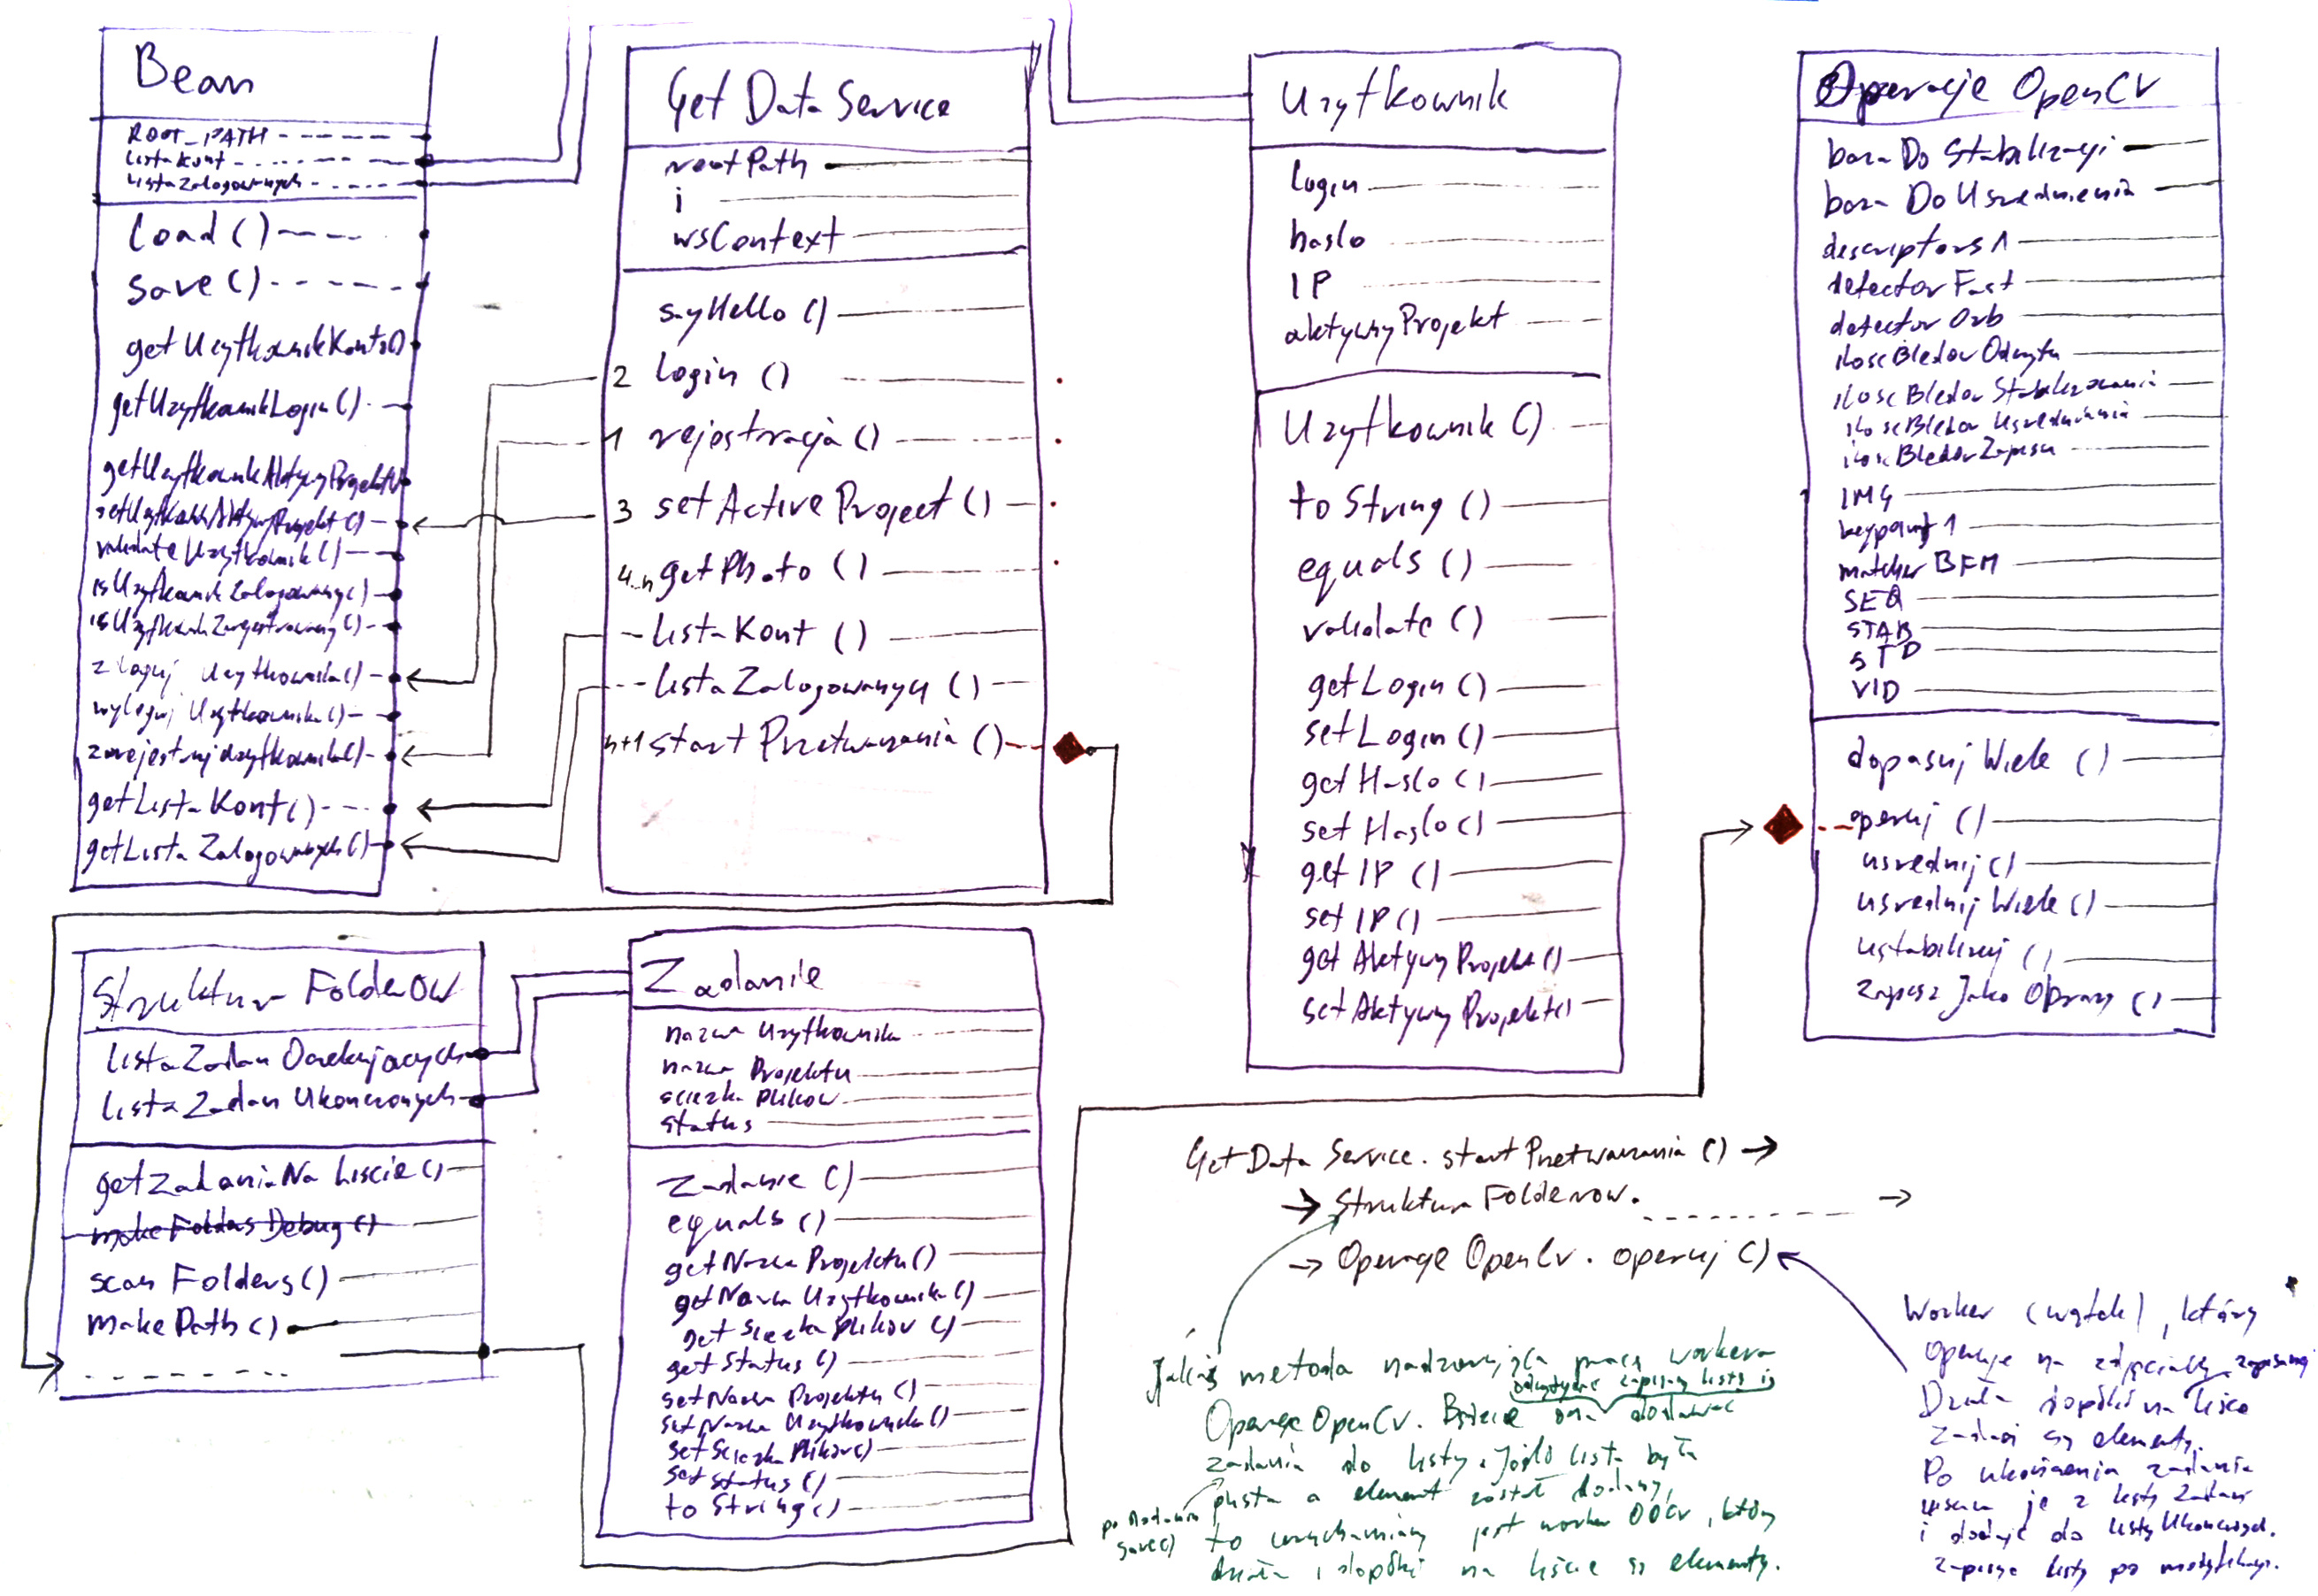 Bean
ROOT_PATH
listaKont
listaZalogowanych
load()
save()
getUzytkownikKonto()
getUzytkownikLogin()
getUzytkownikAktywyProjekt()
setUzytkownikAktywyProjekt()
validateUzytkownik()
isUzytkownikZalogowany()
isUzytkownikZarejestrowany()
zaloguj Uzytkownika()
wyloguj Uzytkownika()
zarejestrujUzytkownika()
getListaKont()
getListaZalogowanych()
Get Data Service
rootPath
i
wsContext
sayHello()
2 login()
1 rejestracja()
3 setActiveProject()
4..n getPhoto()
listaKont()
listaZalogowanych()
n+1 startPrzetwarzania()
Uzytkownik
login
haslo
IP
aktywnyProjekt
Uzytkownik()
toString()
equals()
validate()
getLogin()
setLogin()
getHaslo()
setHaslo()
getIP()
setIP()
getAktywnyProjekt()
setAktywnyProjekt()
Operacje OpenCV
bazaDoStabilizacji
bazaDoUsrednienia
descriptors1
detectorFast
detectorOrb
iloscBledowOdczytu
iloscBledowStabilizowania
iloscBledowUsredniania
iloscBledowZapisu
IMG
keypoint1
matcherBFM
SEQ
STAB
STD
VID
dopasujWiele()
operuj()
usrednij()
usrednijWiele()
ustabilizuj()
zapiszJakoObrazy()
Struktura Folderow
listaZadanOczekujacych
listaZadanUkonczonych
getZadaniaNaLiscie()
makeFoldersDebug()
scanFolders()
makePath()
Zadanie
nazwaUzytkownika
nazwaProjektu
sciezkaPlikow
status
Zadanie()
equals()
getNazwaProjektu()
getNazwaUzytkownika()
getSciezkaPlikow()
getStatus()
setNazwaProjektu()
setNazwaUzytkownika()
setSciezkaPlikow()
setStatus()
toString()
GetDataService.startPrzetwarzania() →
→ StrukturaFolderow. →
→ OperacjeOpenCv.operuj()
Jakaś metoda nadzorująca pracę workera
zapisany listy i
OperacjeOpenCv. Będzie ona dodawać
zadania do listy. Jeśli lista była
pusta a element został dodany,
po dodaniu
save()
to uruchamiany jest worker OOCv, który
działa dopóki na liście są elementy.
Worker (wątek), który
operuje na zdjęciach
Działa dopóki na liście
zadań są elementy.
Po ukończeniu zadania
usuwa je z listy Zadań
i dodaje do listy Ukończonych.
zapisuje listy po modyfikacji.